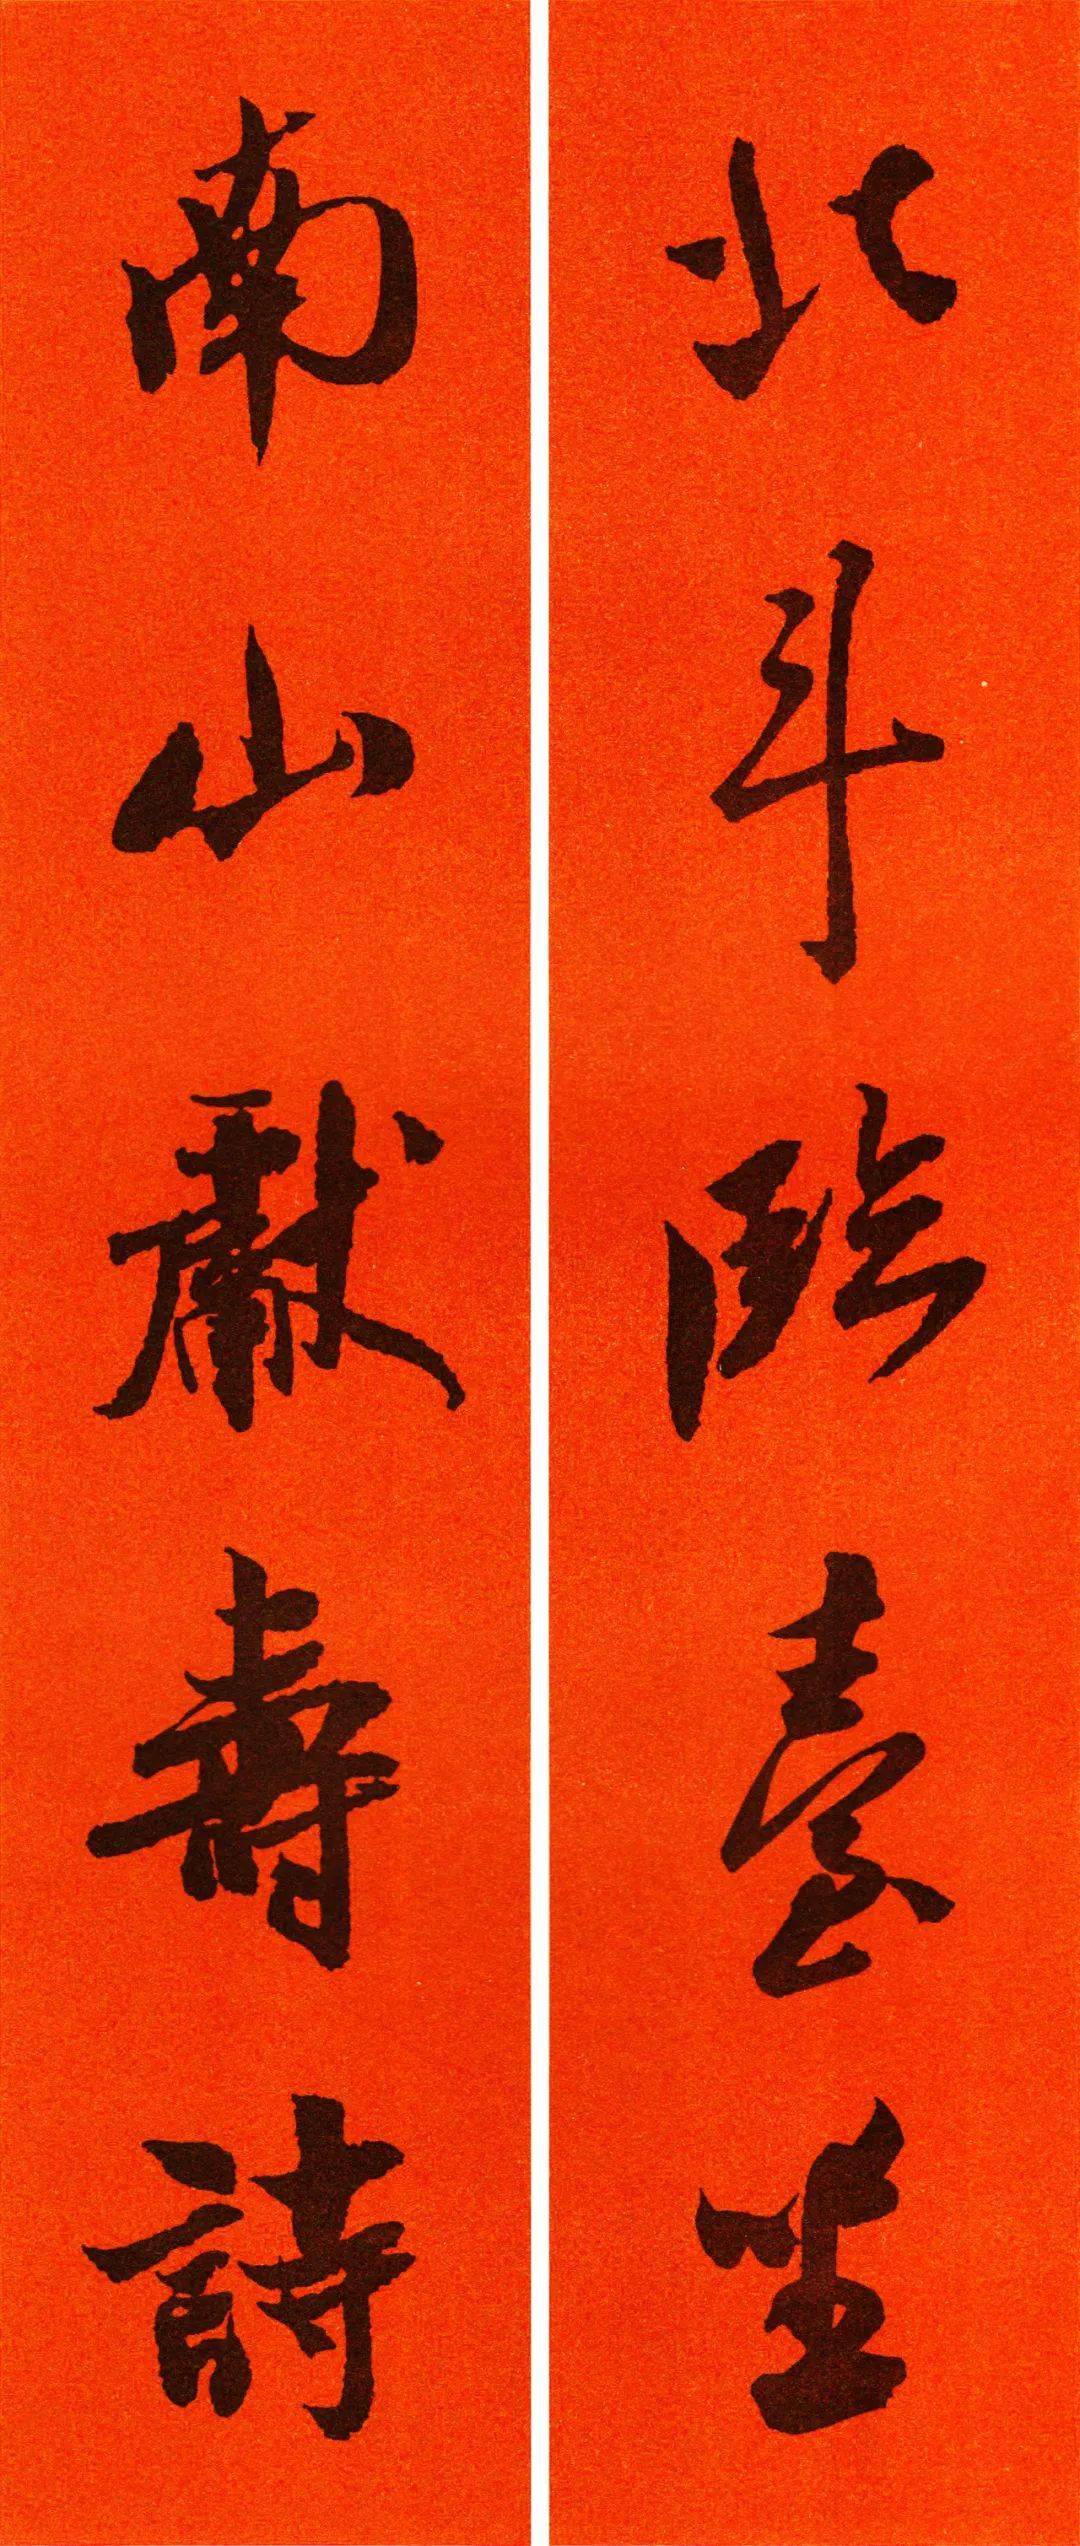 北斗臨臺坐
南山獻壽詩